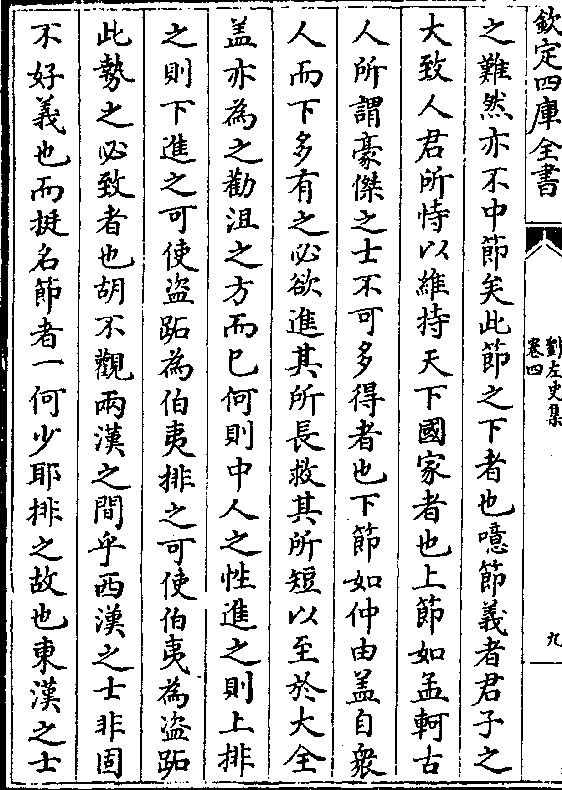 欽定四庫全書
劉左史集
卷四
九
之難然亦不中節矣此節之下者也噫節義者君子之
大致人君所恃以維持天下國家者也上節如孟軻古
人所謂豪傑之士不可多得者也下節如仲由盖自衆
人而下多有之必欲進其所長救其所短以至於大全
盖亦為之勸沮之方而已何則中人之性進之則上排
之則下進之可使盜跖為伯夷排之可使伯夷為盜跖
此勢之必致者也胡不觀兩漢之間乎西漢之士非固
不好義也而挺名節者一何少耶排之故也東漢之士